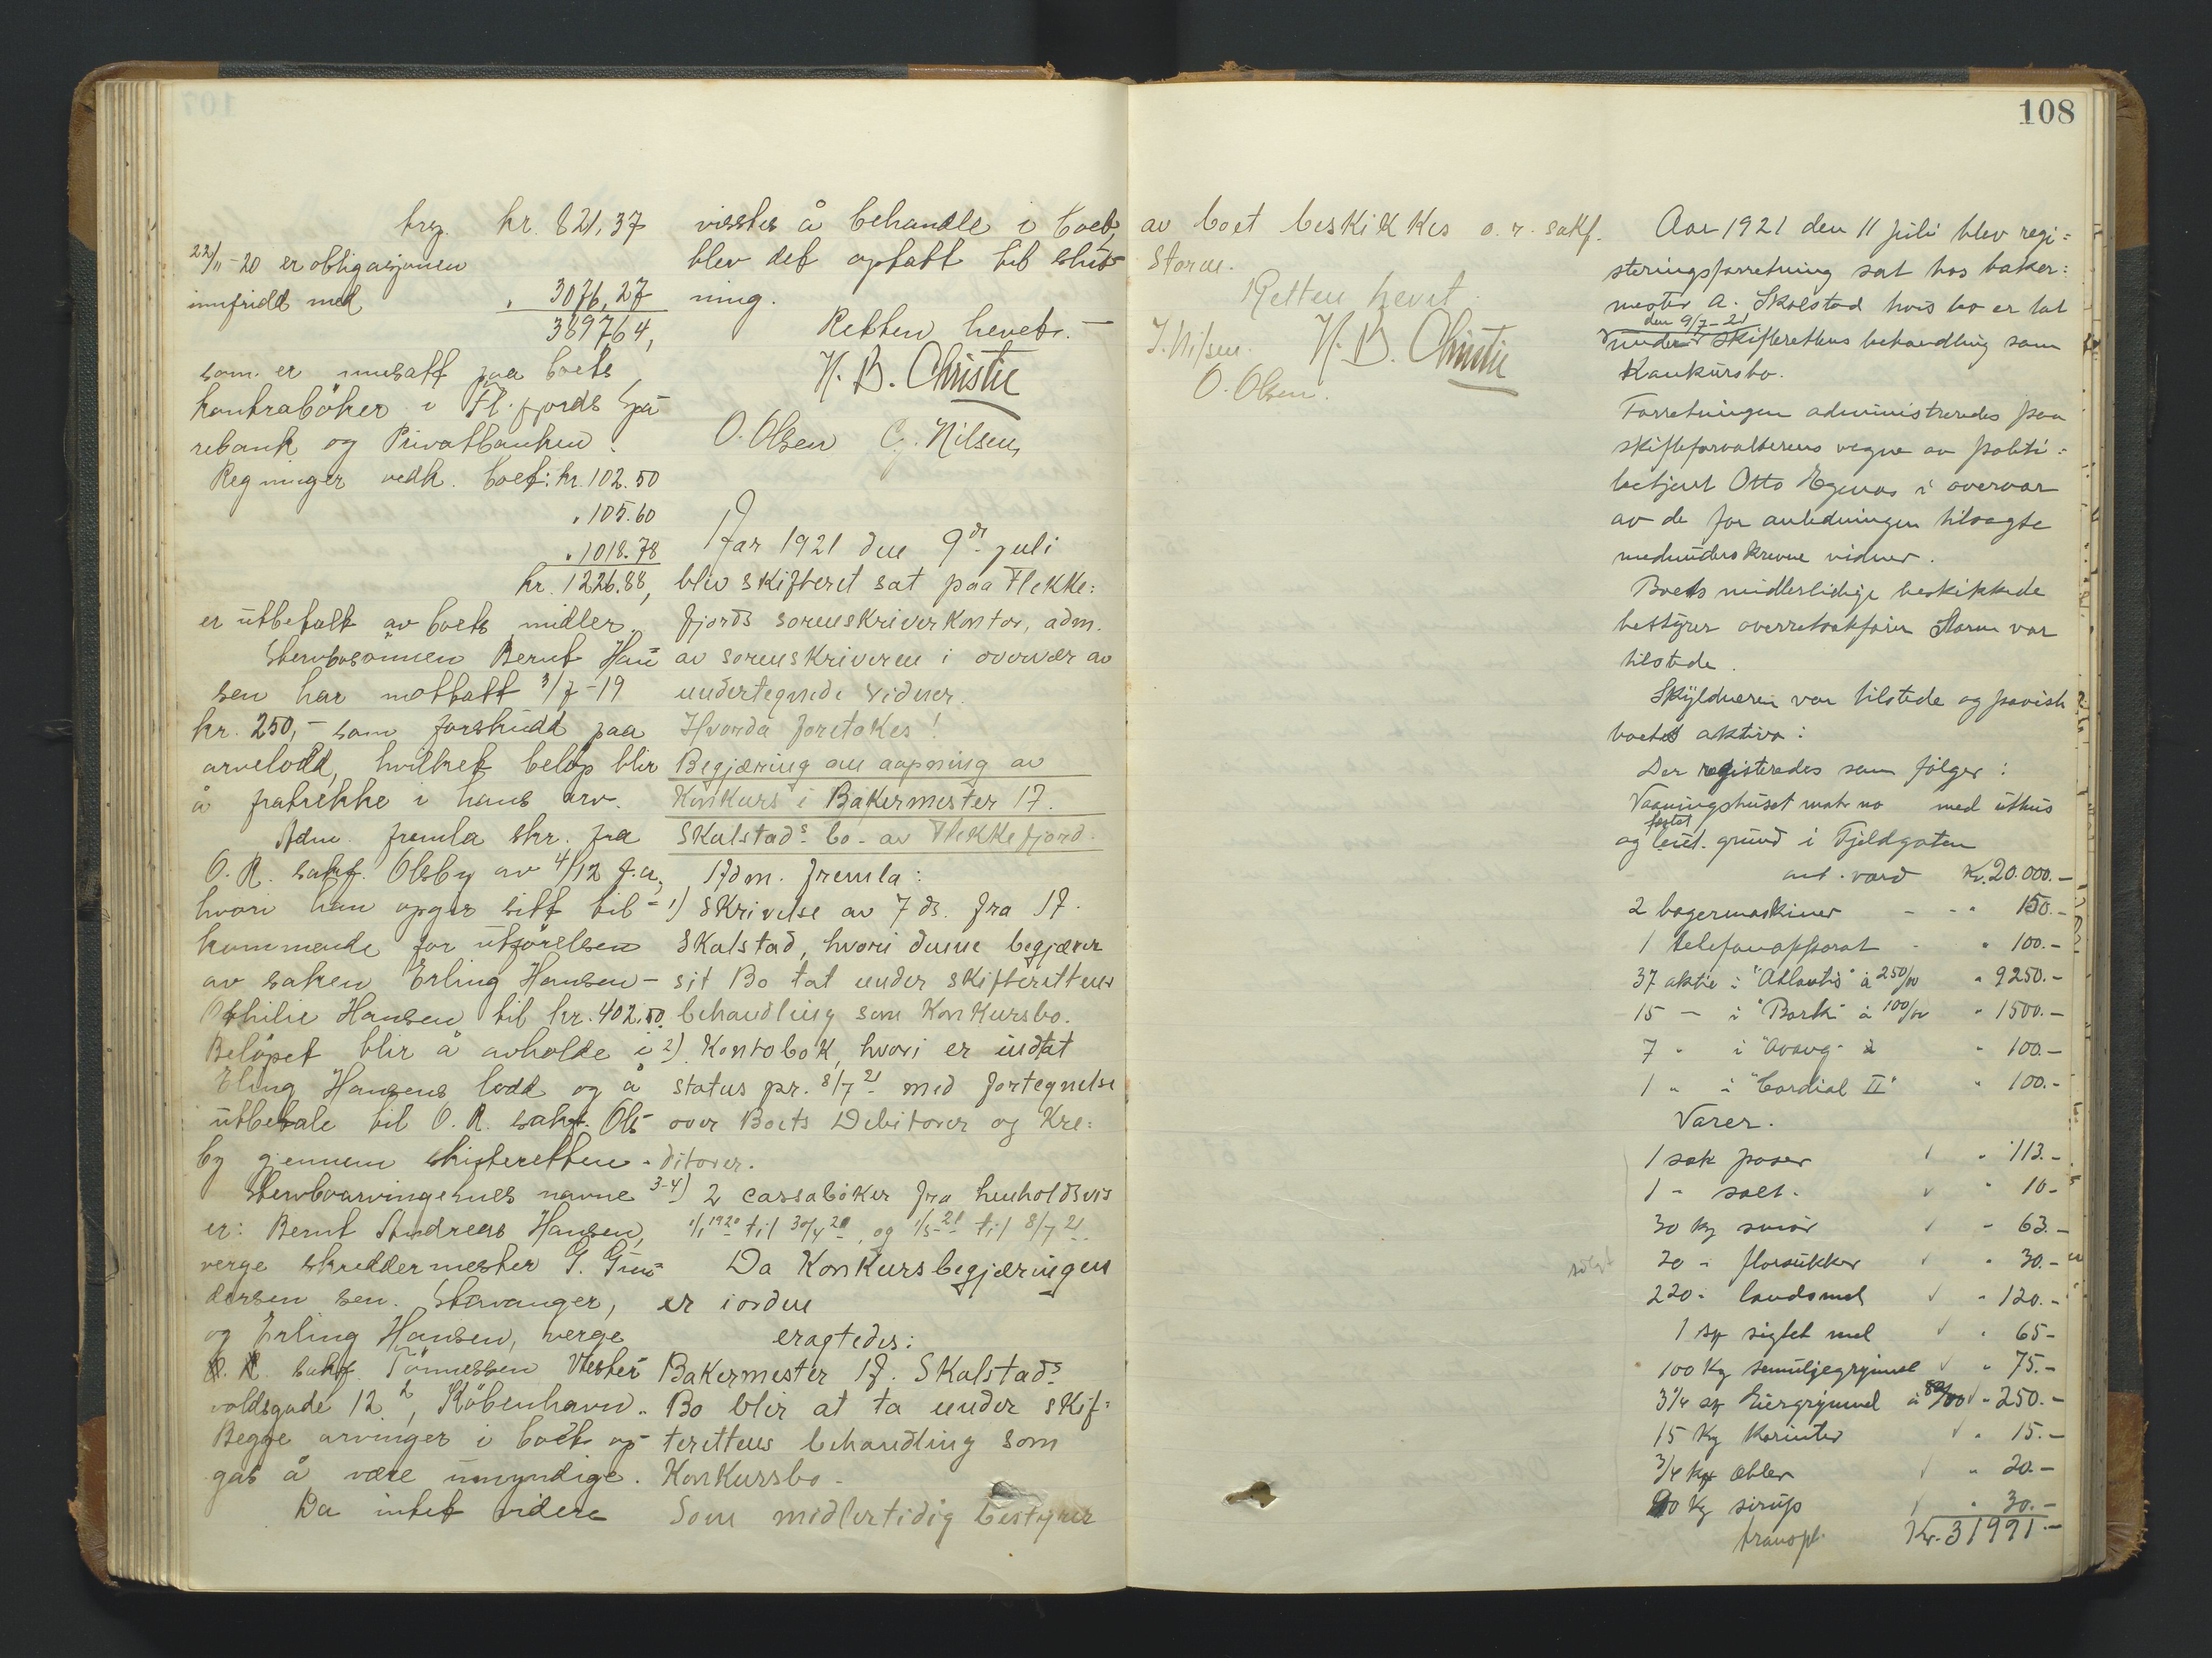 107
trsp. kr. 821,37
22/11-20 er obligasjonen
innfridd med " 3076,27
389764,
som er innsatt paa boets
kontrabøker i Fl.fjords Spa-
rebank og Privatbanken.
Regninger vedk. boet: kr. 102.50
" 105.60
" 1018.78
kr. 1226.88,
er utbetalt av boets midler.
Stervbosønnen Bernt Han-
sen har mottatt 3/7-19
kr. 250,- som forskudd paa
arvelodd, hvilket beløp blir
å fratrekke i hans arv.
Adm. fremla skr. fra
O.R. sakf. Olsby av 4/12 f.a,
hvori han opgir sitt til-
kommende for utførelsen
av saken Erling Hansen -
Othilie Hansen til kr. 402.50.
Beløpet blir å avholde i
Erling Hansens lodd og å
utbetale til O.R. sakf. Ols-
by gjennem skifteretten.
Stervboarvingernes navne
er: Bernt Andreas Hansen,
verge skreddermester G. Gun-
dersen sen. Stavanger,
og Erling Hansen, verge
O.R. sakf. Tönnessen Vester
voldsgade 12, Köbenhavn.
Begge arvinger i boet op-
gas å være umyndige.
Da intet videre
visstes å behandle i boet,
blev det optatt til slut-
ning.
Retten hevet. -
H. B. Christie
O. Olsen J. Nilsen
Aar 1921 den 9de juli
blev skifteret sat paa Flekke=
fjords sorenskriverkontor, adm.
av sorenskriveren i overvær av
undertegnede vidner.
Hvorda foretokes!
Begjæring om aapning av
Konkurs i Bakermester A.
Skalstads bo - av Flekkefjord.
Adm. fremla:
1) Skrivelse av 7 ds. fra A.
Skalstad, hvori denne begjærer
sit Bo tat under skifterettens
behandling som Konkursbo.
2) Kontobok, hvori er indtat
status pr. 8/7 21 med fortegnelse
over Boets Debitorer og Kre=
ditorer.
3-4) 2 cassabøker fra henholdsvis
1/1 1920 til 30/4 20, og 1/5 21 til 8/7 21.
Da Konkursbegjæringen
er iorden
eragtedes:
Bakermester A. Skalstads
Bo blir at ta under skif=
terettens behandling som
Konkursbo -
Som midlertidig bestyrer
108
av boet beskikkes o.r. sakf.
Storm.
Retten hevet.
J. Nilsen. H. B. Christie
O. Olsen.
Aar 1921 den 11 juli blev regi=
streringsforretning sat hos baker=
mester A. Skalstad hvis bo er tat
den 9/7-21
under skifterettens behandling som
Konkursbo.
Forretningen administreredes paa
skifteforvalterens vegne av politi=
betjent Otto Egenes i overvær
av de for anledningen tilsagte
medunderskrevne vidner.
Boets midlertidige beskikkede
bestyrer overretssakfører Storm var
tilstede.
Skyldneren var tilstede og paaviste
boets aktiva:
Der registeredes som følger:
Vaaningshuset matr no med uthus
festet
og leiet. grund i Fjeldgaten
ant. værd Kr. 20.000.-
2 bagermaskiner - - " 150.-
1 telefonapparat - " 100.-
37 aktie i "Atlantis" à 250/00 " 9250.-
15 - i "Bark" à 100/00 " 1500.-
7 " i à " 100.-
1 " i "Cordial II" " 100.-
Varer.
1 sæk poser √ " 113.-
1 - salt. √ " 10-
30 kg smør √ - 63.-
20 - florsukker √ " 30.-
220 - landsmel √ - 120.-
1 sk sigtet mel √ " 65-
100 kg semuljegrynmel √ " 75.-
3 1/4 sk à 80/00 √ - 250.-
15 kg Korinter √ " 15.-
3/4 kg æbler √ " 20.-
kg sirup √ " 30.-
transpt. Kr. 31991.-